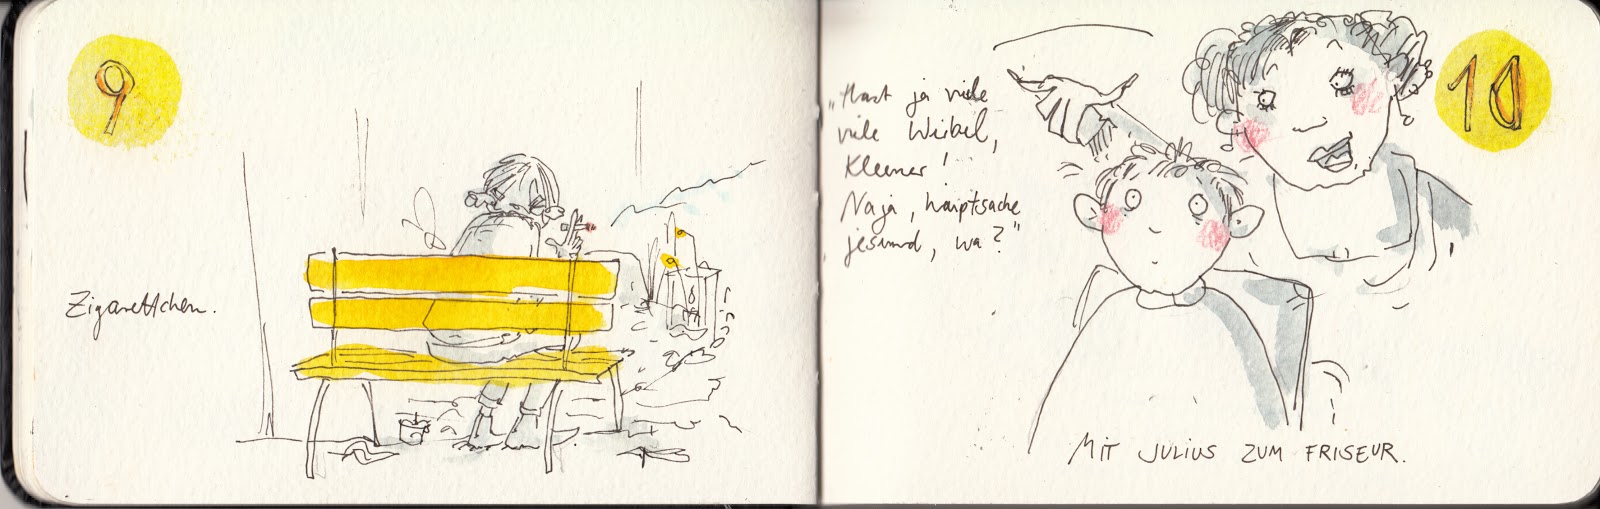 9
Zigarettchen.
10
„Hast ja viele
viele Wirbel,
Kleener!
Naja, hauptsache
jesund, wa?“
MIT JULIUS ZUM FRISEUR.